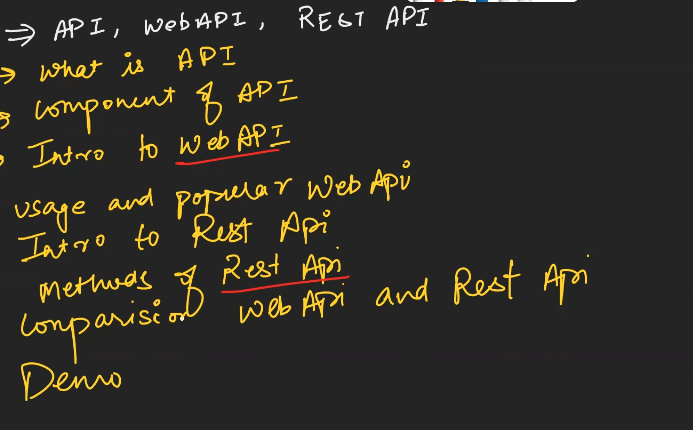 ⇒ API, WebAPI, REST API
→ what is API
→ component of API
→ Intro to WebAPI
usage and popular Web Api
Intro to Rest Api
Methods of Rest Api
Comparision Web Api and Rest Api
Demo